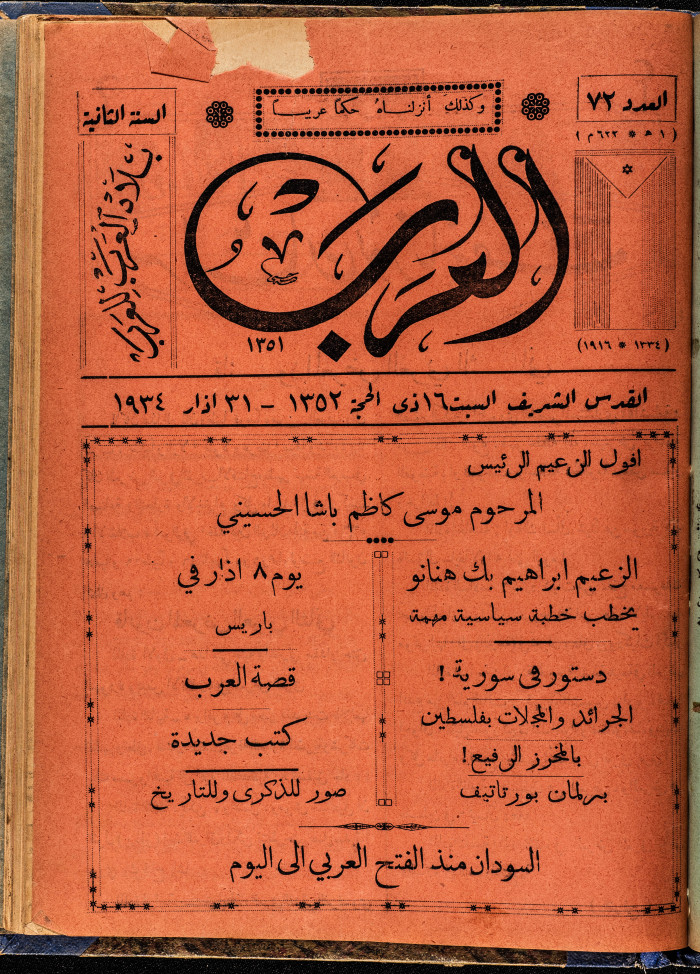 العدد ٧٢
وكذلك أنزلناه حكما عربيا
السنة الثانية
(١ هـ * ٦٢٣ م)
العرب
بلاد العرب للعرب
١٣٥١
(١٣٣٤ * ١٩١٦)
القدس الشريف السبت ١٦ ذى الحجة ١٣٥٢ – ٣١ اذار ١٩٣٤
افول الزعيم الرئيس
المرحوم موسى كاظم باشا الحسيني
الزعيم ابراهيم بك هنانو
يخطب خطبة سياسية مهمة
دستور في سورية !
الجرائد والمجلات بفلسطين
بالمخرز الرفيع !
برلمان بورتاتيف
يوم ٨ اذار في
باريس
قصة العرب
كتب جديدة
صور للذكرى وللتاريخ
السودان منذ الفتح العربي الى اليوم